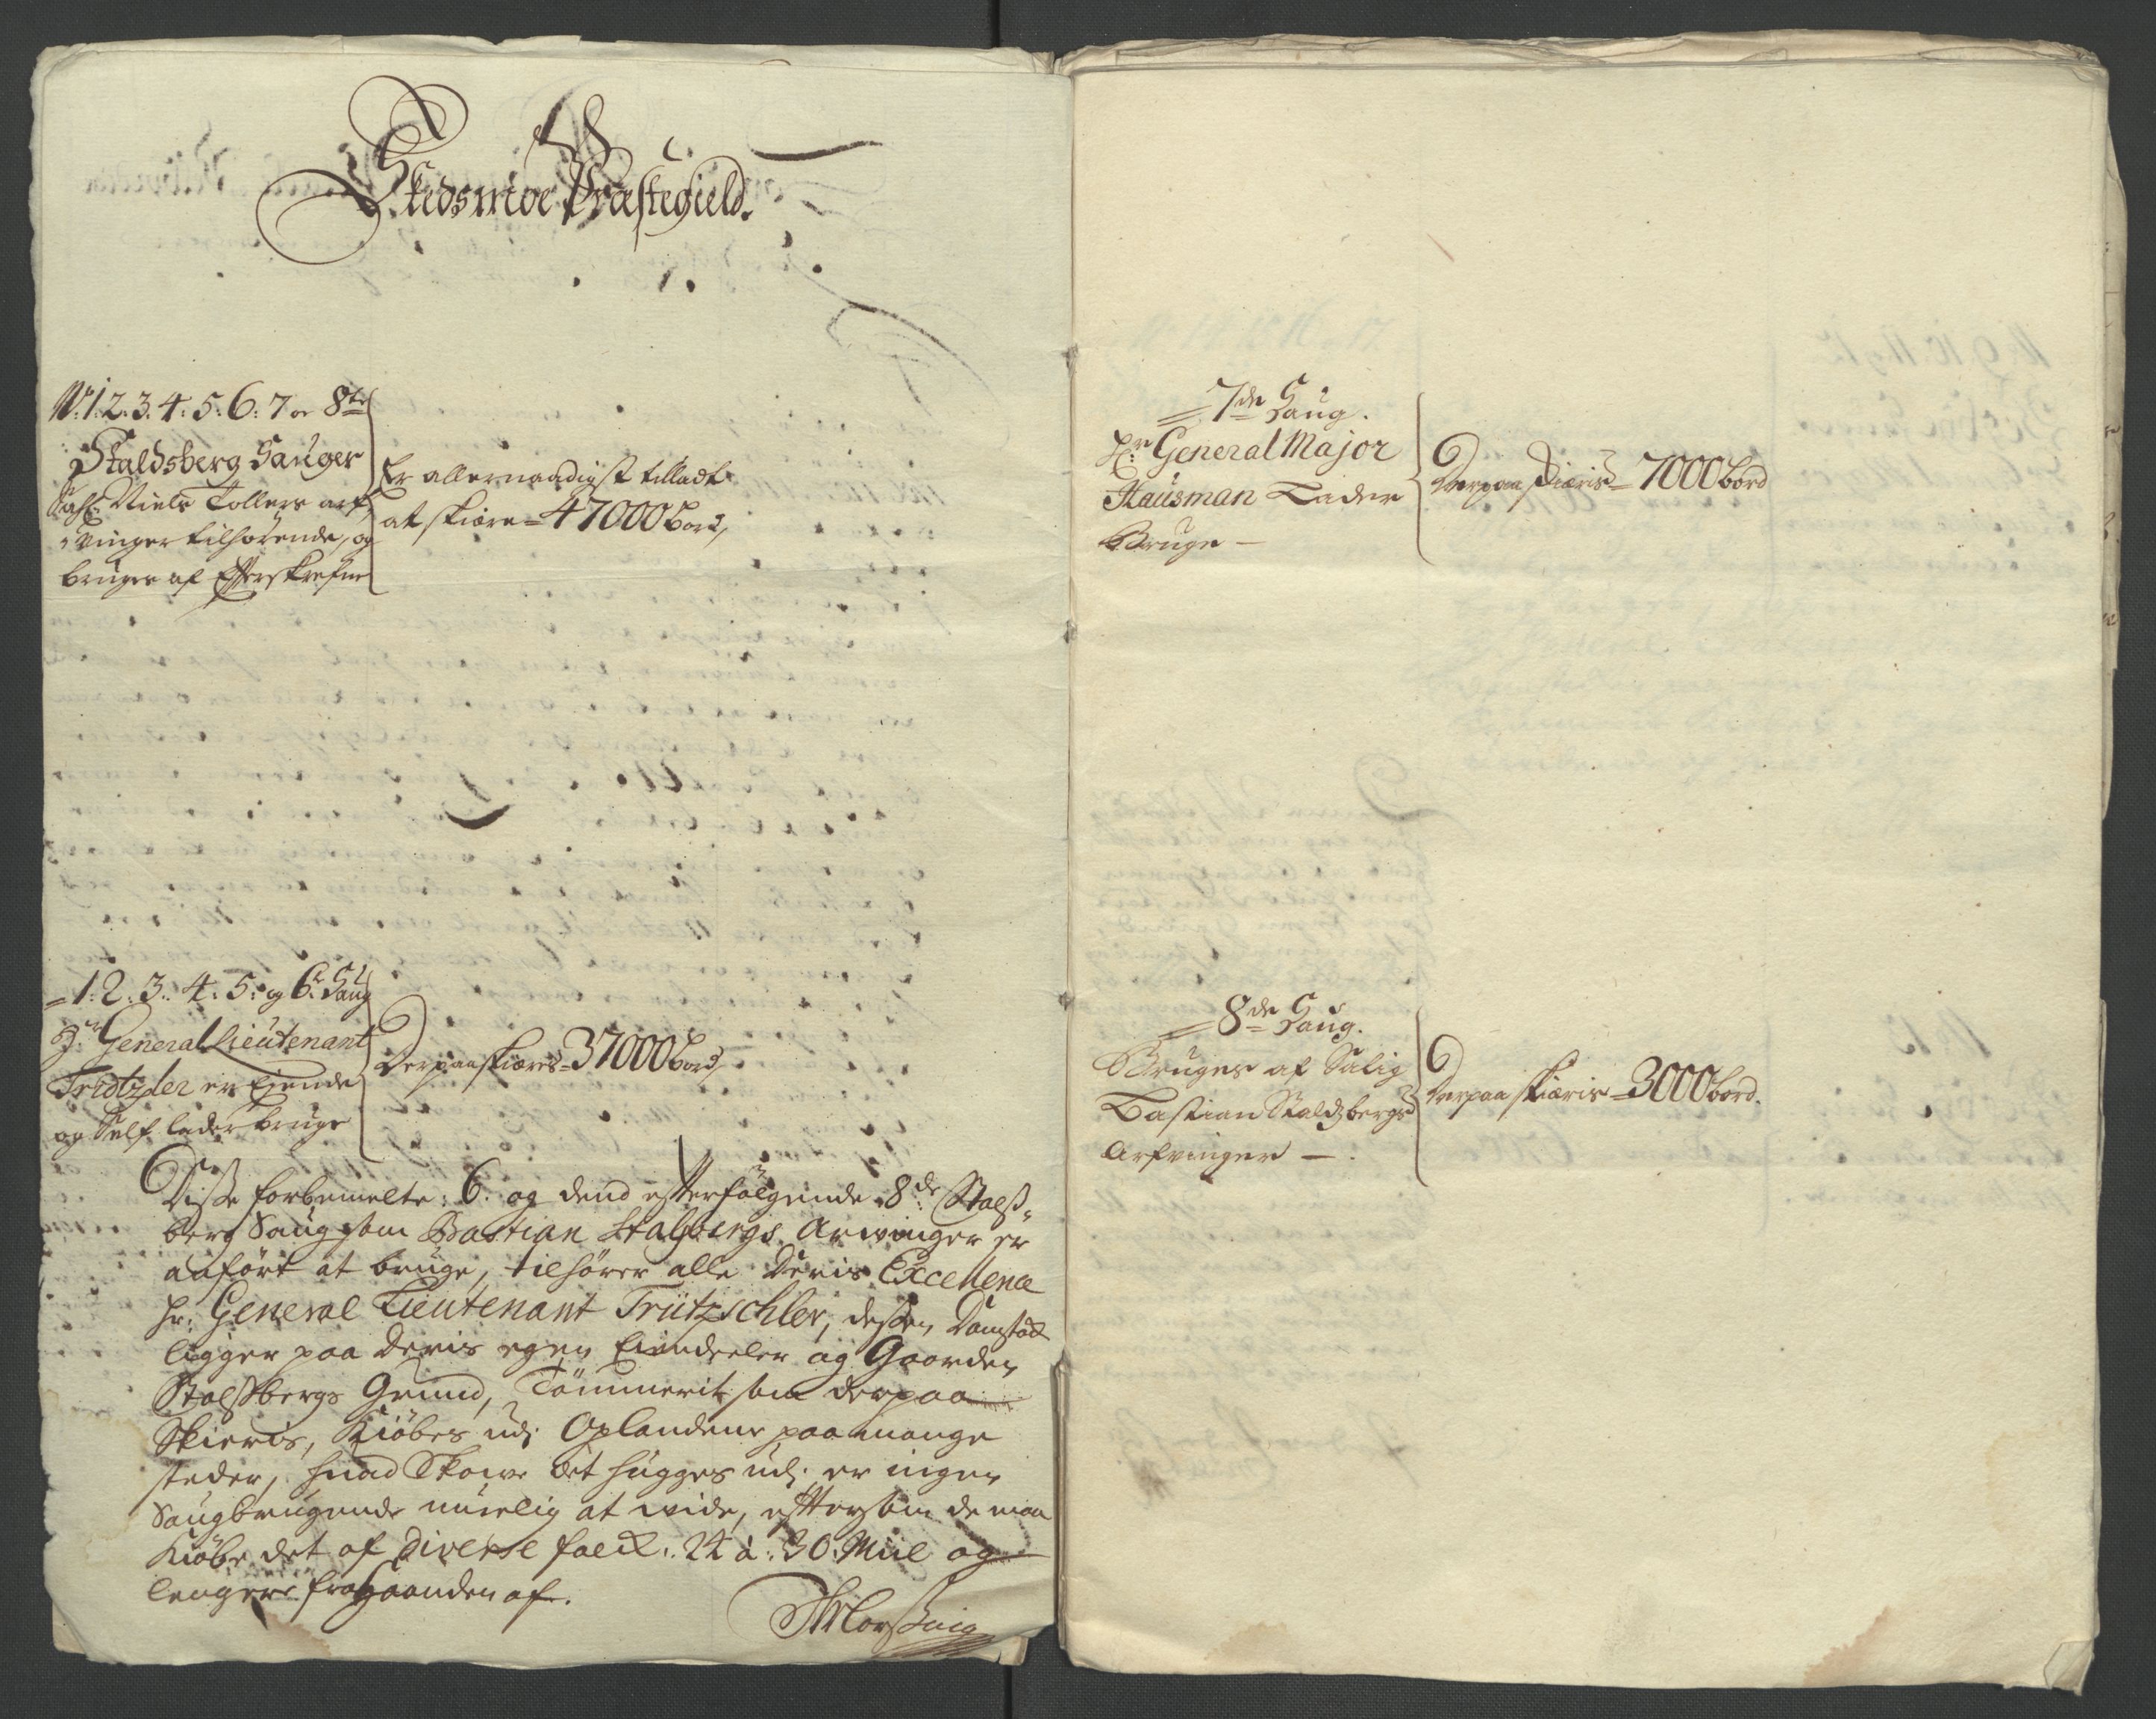 Skedsmoe Præstegield.
N: 1: 2. 3. 4: 5: 6: 7 or 8de
Staldsberg Sauger
Sahl: Niels Tollers arf,
vinger tilhørende, og
bruges af Efterskrefne
Er allernaadigst tilladt
at skiære = 47000 bord,
= 1: 2. 3. 4: 5: og 6: Saug
Hr General Lieutenant
Tridtzler er Eiende
og Self lader bruge
Derpaa skiæres = 37000 bord,
Disse forbemelte: 6: og dend efterfølgende 8de Stalß-
berg Saug som Bastian Stalsbergs Arvinger er
anført at bruge, tilhører alle Deris Excellence
Hr: General Lieutenant Trützschler, dessen Damstok
ligger paa Deris egen Eiendeeler og Gaarden
Stalßbergs Grund, Tømmerit som derpaa
Skieris, Kiøbes udj Oplandene paa mange
steder, huad Skowe det hugges udj er ingen
Saugbrugende muelig at vide, eftersom de maa
Kiøbe det af diverse folck: 24 à: 30: Miil og
lengere fra Haanden af.
= 7de Saug.
Hr General Major
Hausman Lader
Bruge —
Derpaa skiæris = 7000 bord
= 8de Saug.
Bruges af Salig
Bastian Staldzbergs
Arfvinger —.
Derpaa skiæris = 3000 bord.